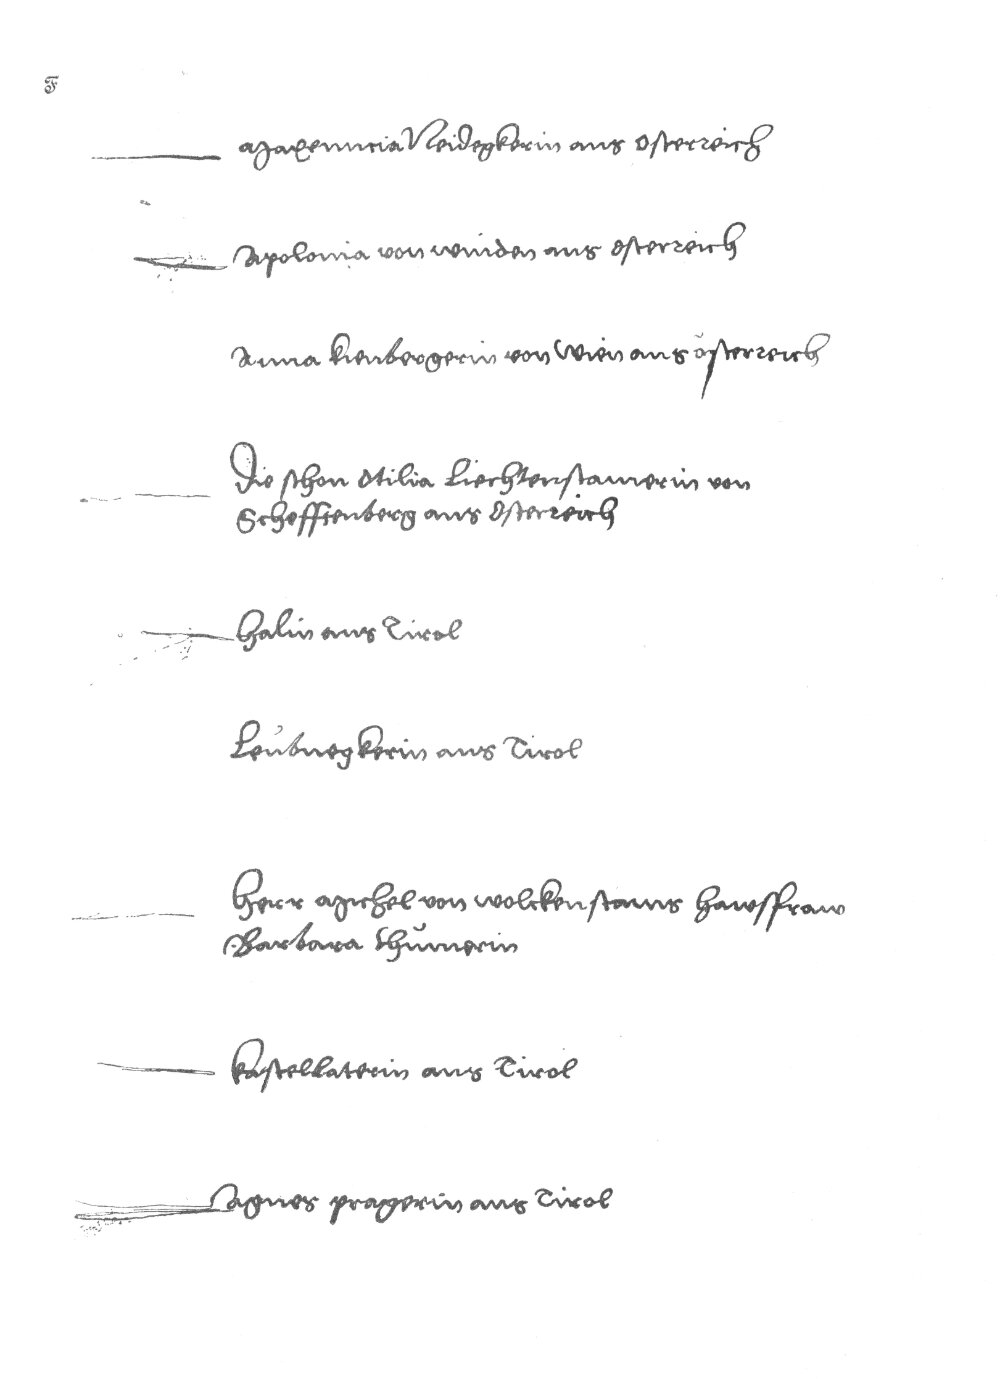 F
Maxenncia Neidegkerin aus Osterreich
Apolonia von winden aus Osterreich
Anna kienbergerin von Wien aus österreich
Die schon Otilia Liechtenstainerin von
Schefftenberg aus Osterreich
halin aus Tirol
Leübnegkerin aus Tirol
Herr Michel von wolckenstains hawsfraw
Barbara thumerin
kastellaterin aus Tirol
Agnes pragerin aus Tirol